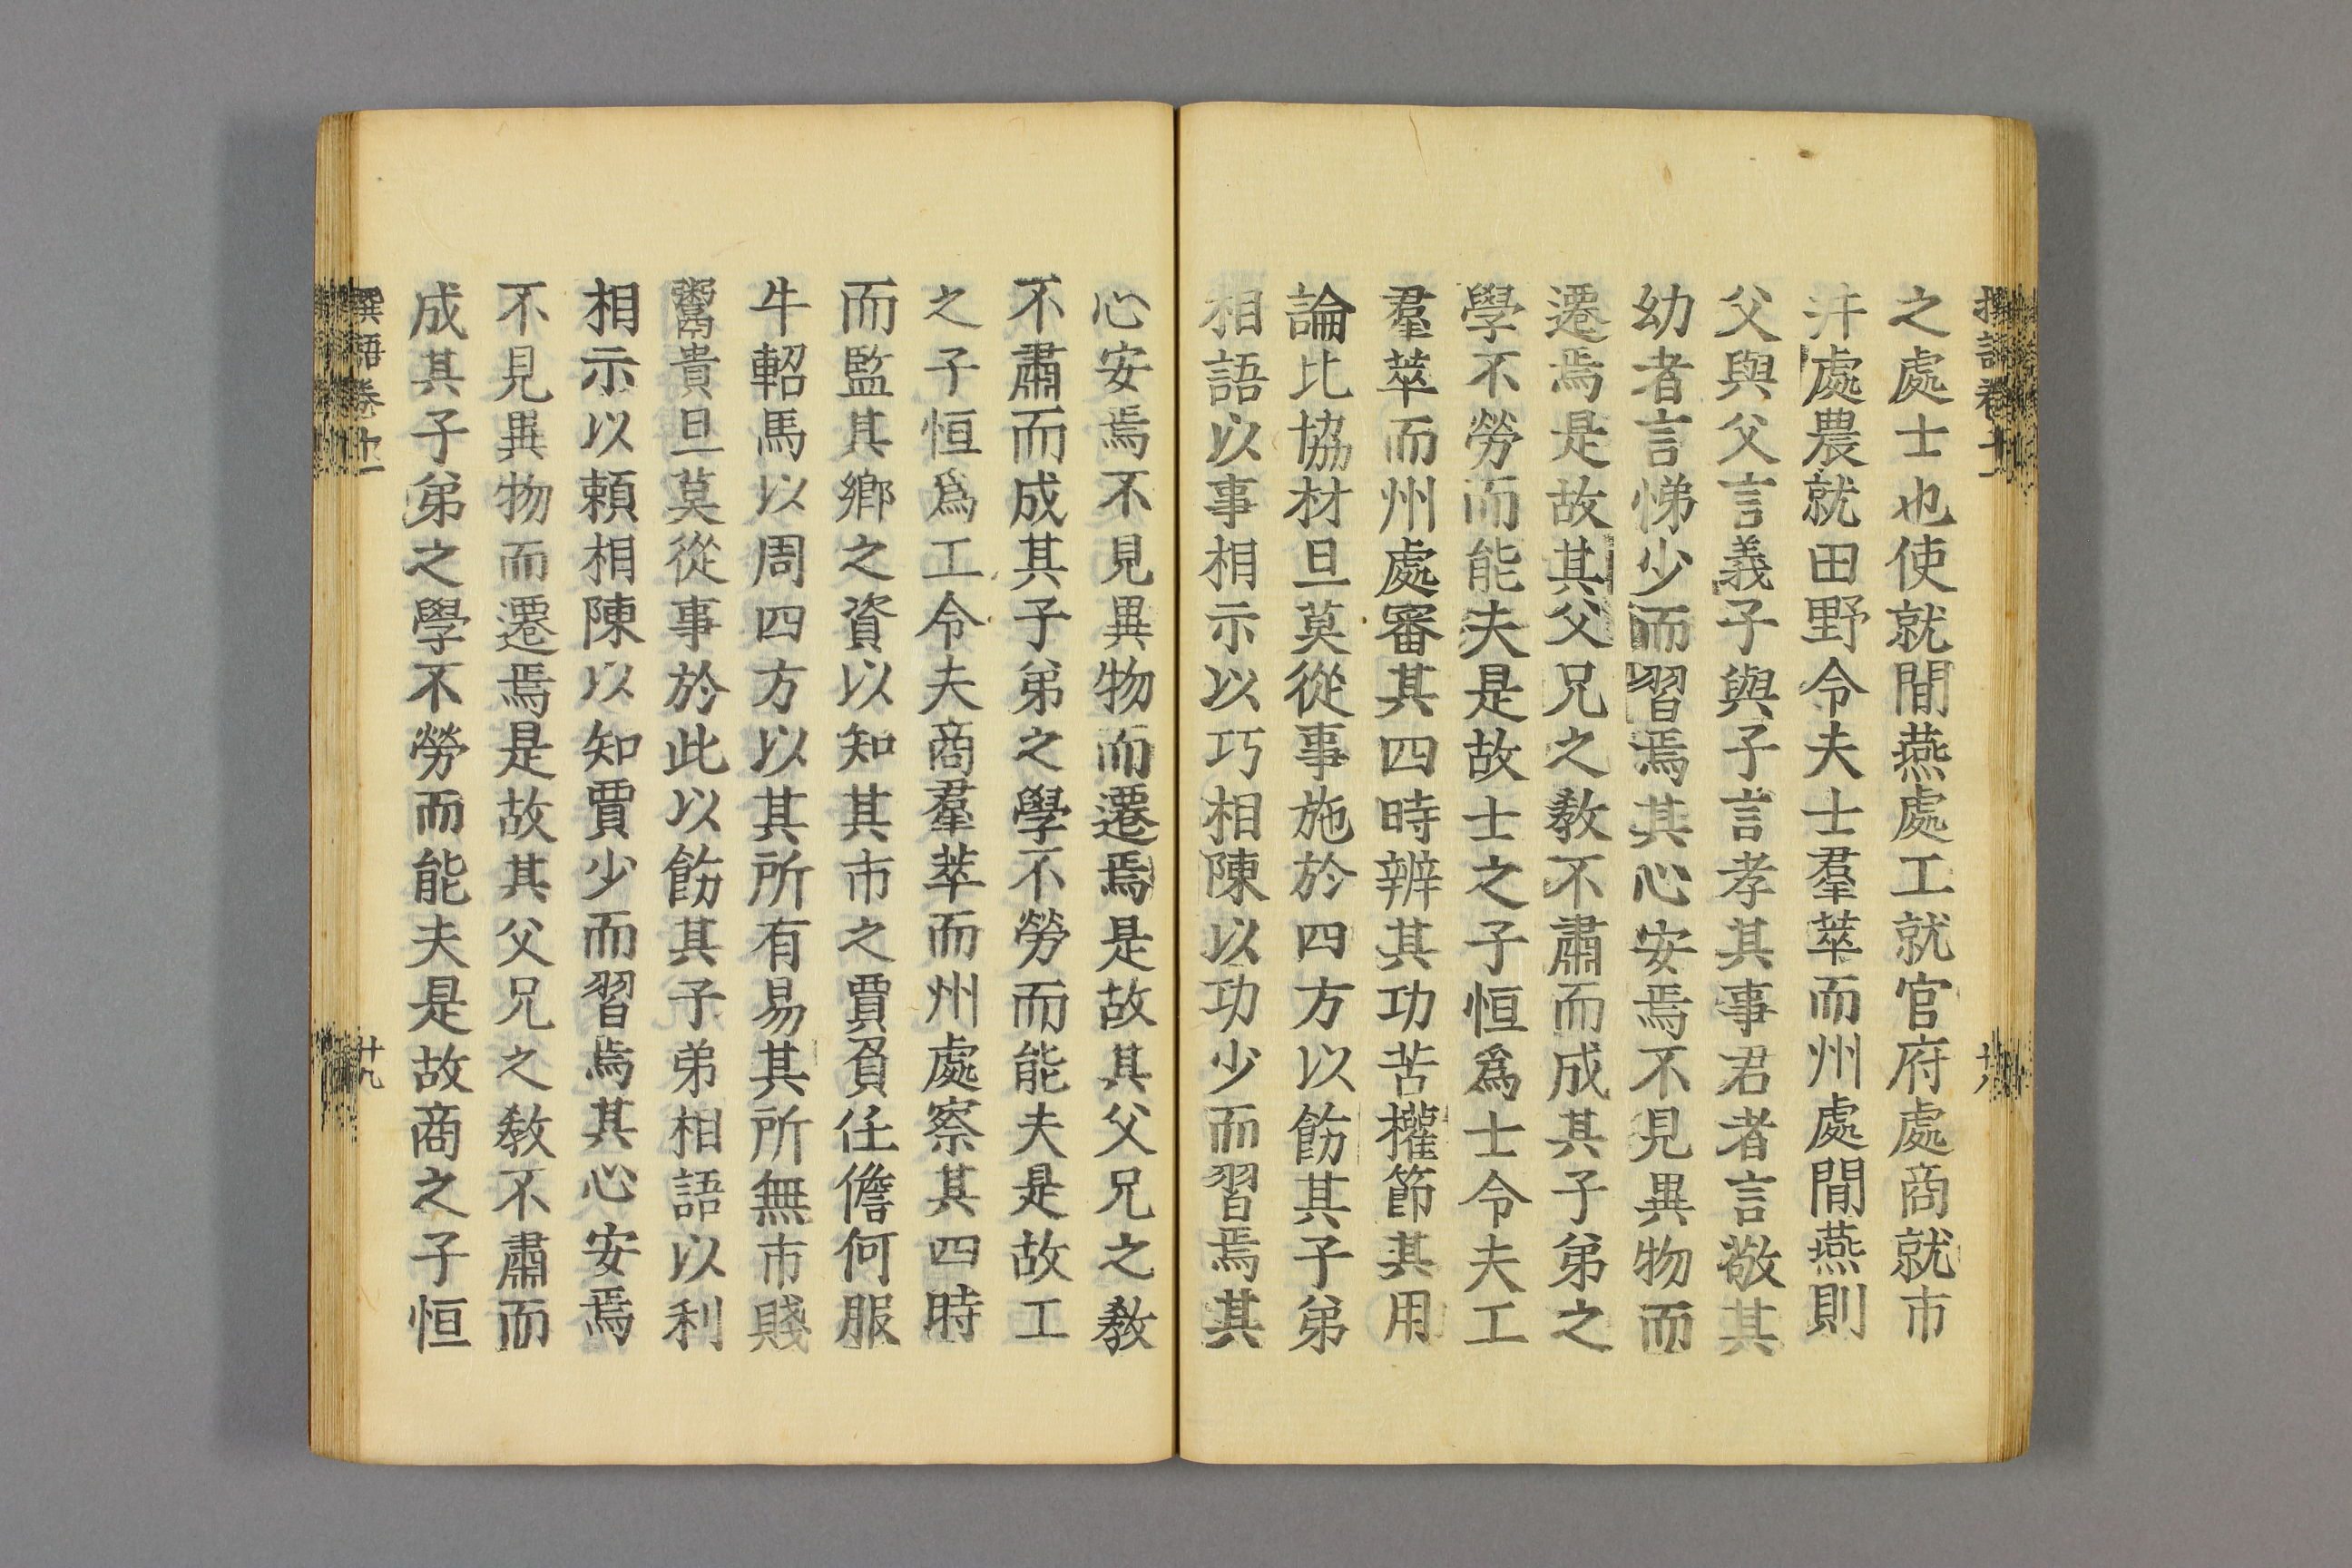 撰語卷十一
廿八
之處士也使就閒燕處工就官府處商就市
井處農就田野令夫士羣萃而州處閒燕則
父與父言義子與子言孝其事君者言敬其
幼者言悌少而習焉其心安焉不見異物而
遷焉是故其父兄之敎不肅而成其子弟之
學不勞而能夫是故士之子恒爲士令夫工
羣萃而州處審其四時辨其功苦權節其用
論比協材旦莫從事施於四方以飭其子弟
相語以事相示以巧相陳以功少而習焉其
心安焉不見異物而遷焉是故其父兄之敎
不肅而成其子弟之學不勞而能夫是故工
之子恒爲工令夫商羣萃而州處察其四時
而監其鄉之資以知其市之賈負任儋何服
牛軺馬以周四方以其所有易其所無市賤
鬻貴旦莫從事於此以飭其子弟相語以利
相示以賴相陳以知賈少而習焉其心安焉
不見異物而遷焉是故其父兄之敎不肅而
成其子弟之學不勞而能夫是故商之子恒
撰語卷十一
廿九